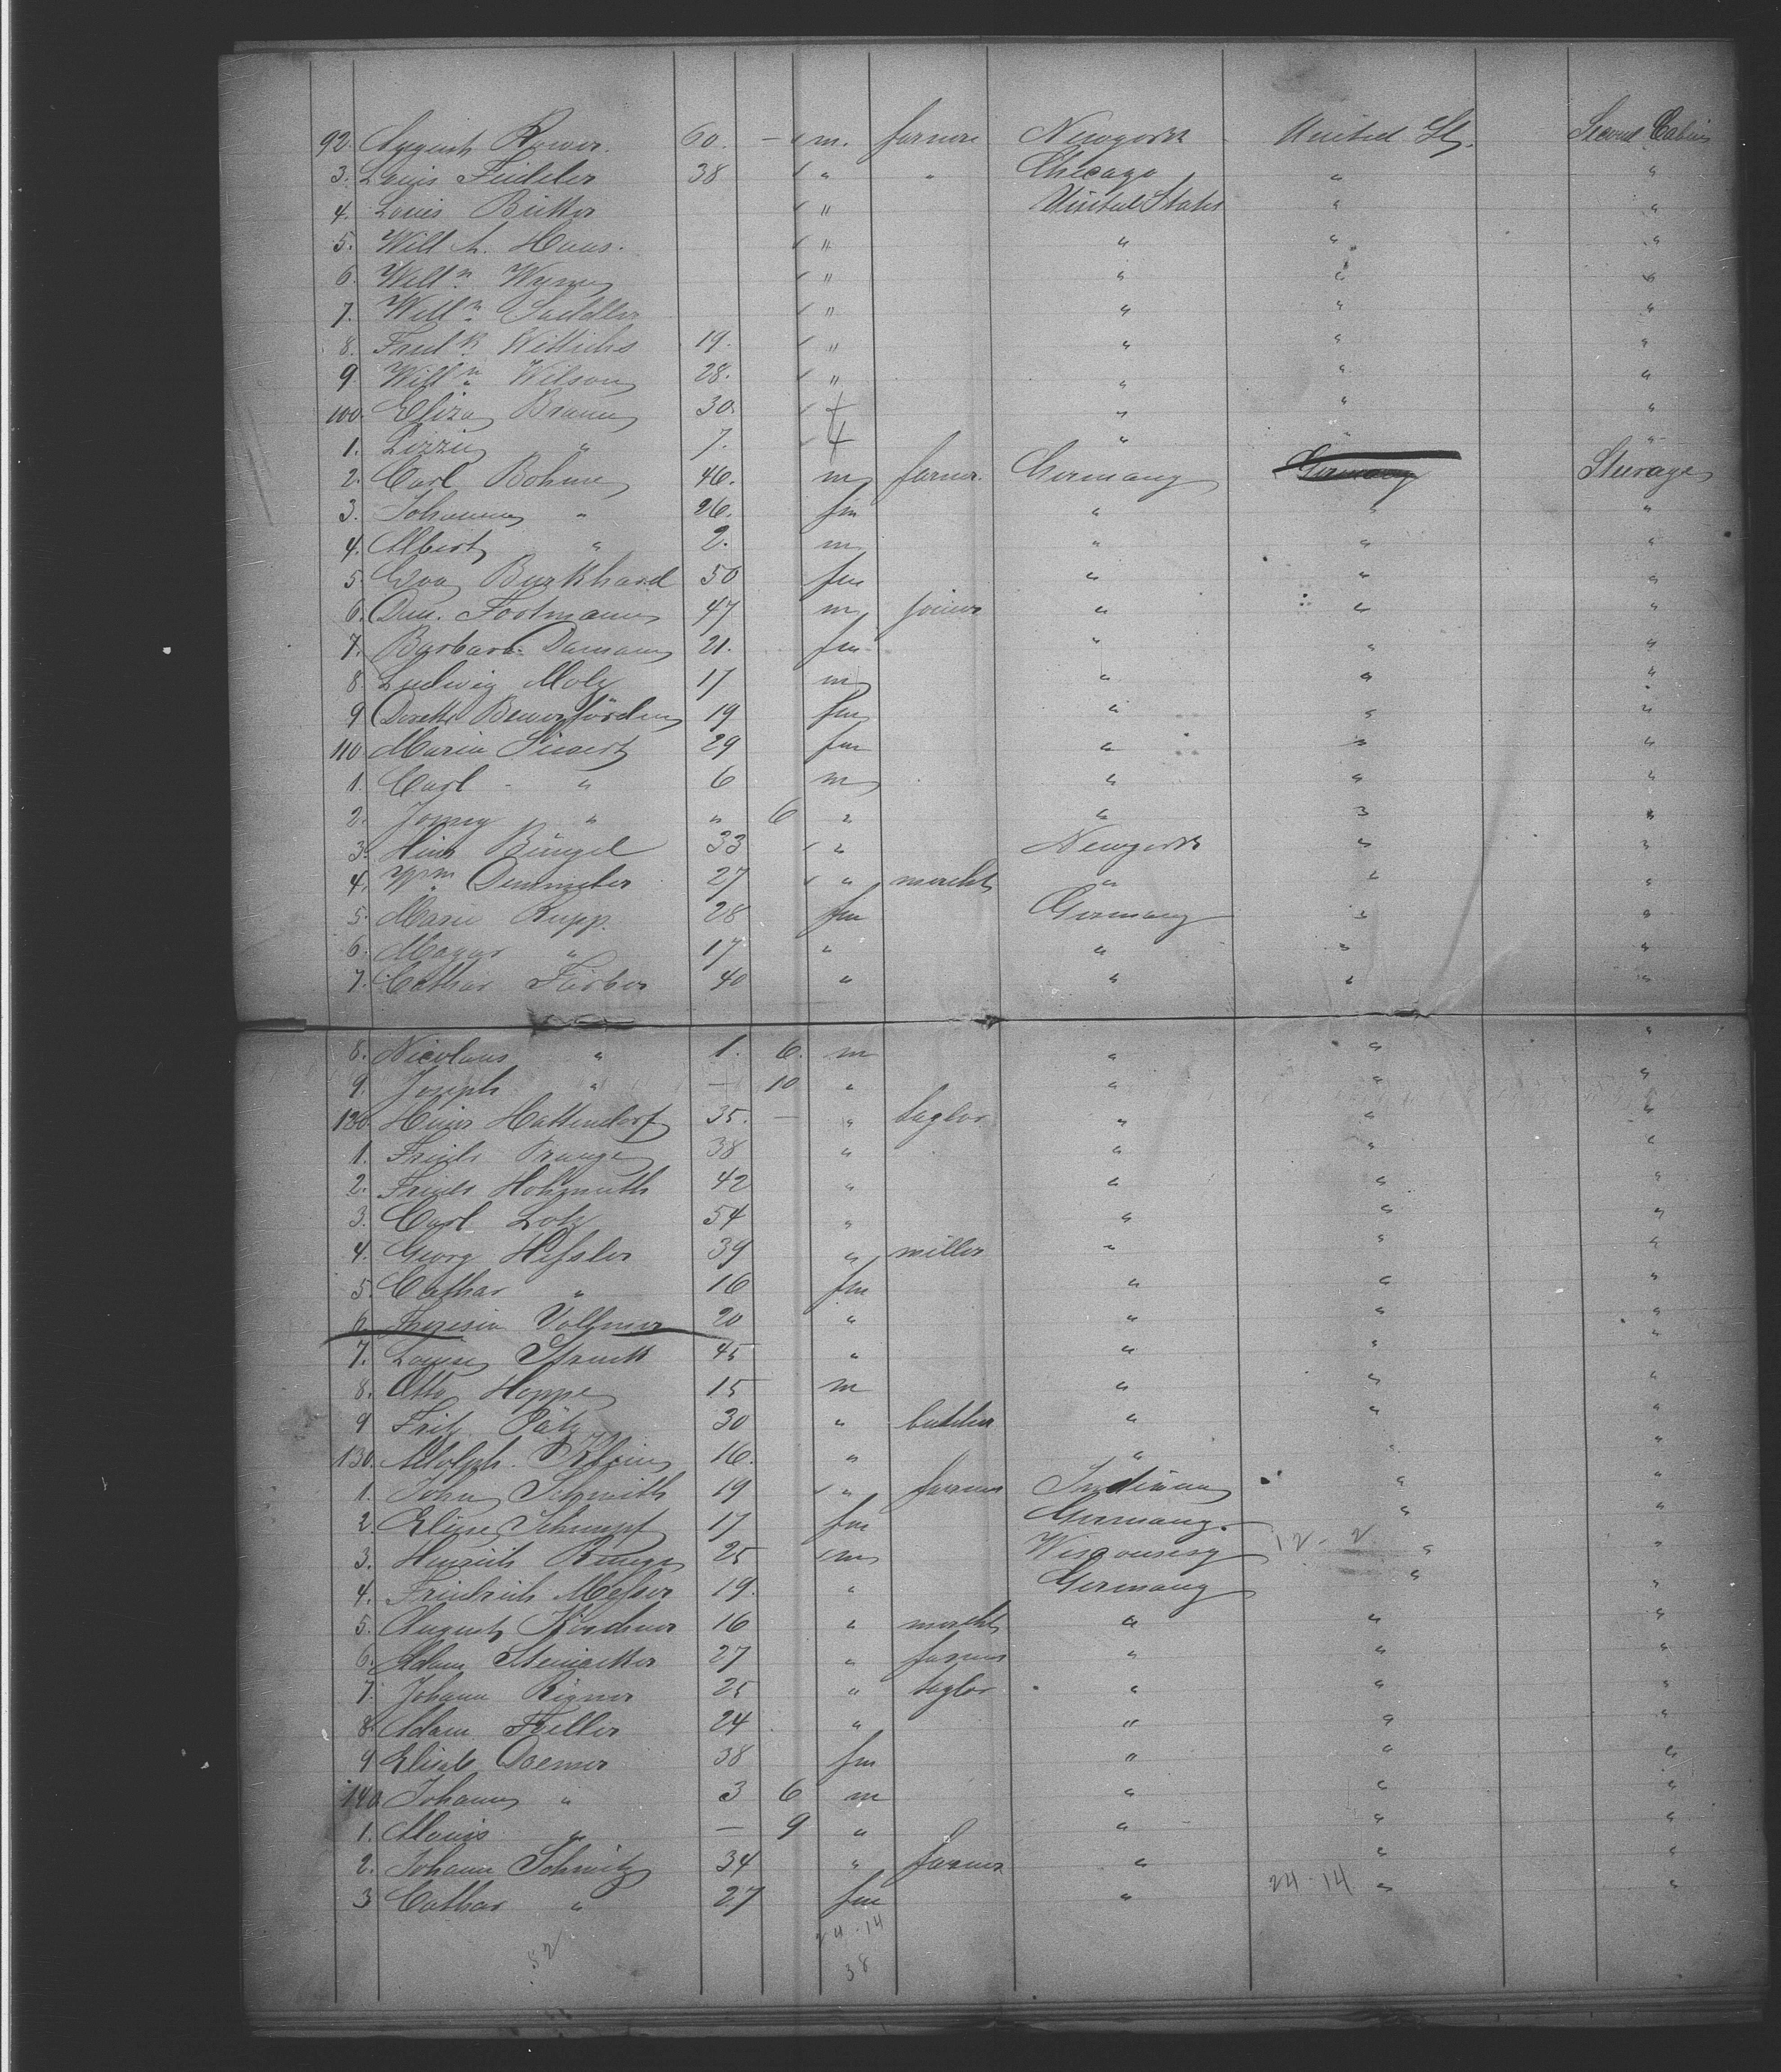 92. August Rower. 60. — m. farmer Newyork United St. Second Cabin
3. Louis Fiedeler 38 " " Chicago " "
4. Louis Butter " United States " "
5. Will h. Haas. " " " "
6. Willm Wynn " " " "
7. Willm Saddler " " " "
8. Fredk Wittichs 19. " " " "
9 Willm Wilson 28. " " " "
100. Eliza Braun 30. f " " "
1. Lizzie " 7. f " " "
2. Carl Bohme 46. m farmer Germany Germany Steerage
3. Johanna " 26. fm " " "
4. Albert " 2. m " " "
5. Eva Burkhard 50 fm " " "
6. Dan. Footmann 47 m joiner " " "
7. Barbara Damann 21. fm " " "
8. Ludwig Molz 17 m " " "
9 Dorette Beverförden 19 fm " " "
110 Maria Sievert 29 fm " " "
1. Carl " 6 m " " "
2. Jonny " " 6 " " " "
3. Heinr Büngel 33 " Newyork " "
4. Wm Demmeler 27 " mercht " " "
5. Marie Rupp. 28 fm Germany " "
6. Magar " 17 " " " "
7. Cathar Färber 40 " " " "
8. Nicolaus " 1. 6. m " " "
9. Joseph " — 10 " " " "
120. Heinr Hattendorf 35. — " taylor " " "
1. Friedr Prange 38 " " " "
2. Friedr Hohmuth 42 " " " "
3. Carl Lotz 54 " " " "
4. Georg Hessler 39 " miller " " "
5. Cathar " 16 fm " " "
6. Theresia Vollmer 20 " " " "
7. Louise Struck 45 " " " "
8. Otto Hoppe 15 m " " "
9 Fritz Pätz 30 " butcher " " "
130. Adolph Klein 16. " " " "
1. John Schmidt 19 " farmer Indiana " "
2. Elise Schrumpf 17 fm Germany. " "
3. Heinrich Runge 25 m Wisconsin 12 - 2 " "
4. Friedrich Messer 19. " Germany " "
5. August Kirchner 16 " mercht " " "
6. Adam Steinacker 27 " farmer " " "
7. Johann Rigner 25 " taylor " " "
8. Adam Feller 24 " " " "
9 Elisab Doemer 38 fm " " "
140. Johann " 3 6 m " " "
1. Alouis " — 9 " " " "
2. Johann Schmitz 34 " farmer " " "
3 Cathar " 27 fm " 24 - 14 " "
24 - 14
52 38